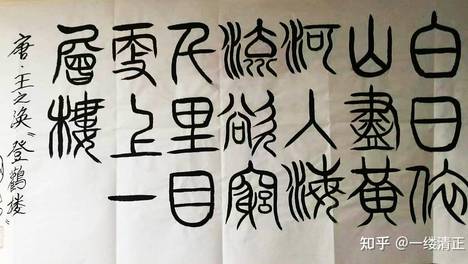 白日依
山盡黃
河入海
流欲窮
千里目
更上一
層樓
唐·王之涣“登鹤楼”
知乎 @一缕清正